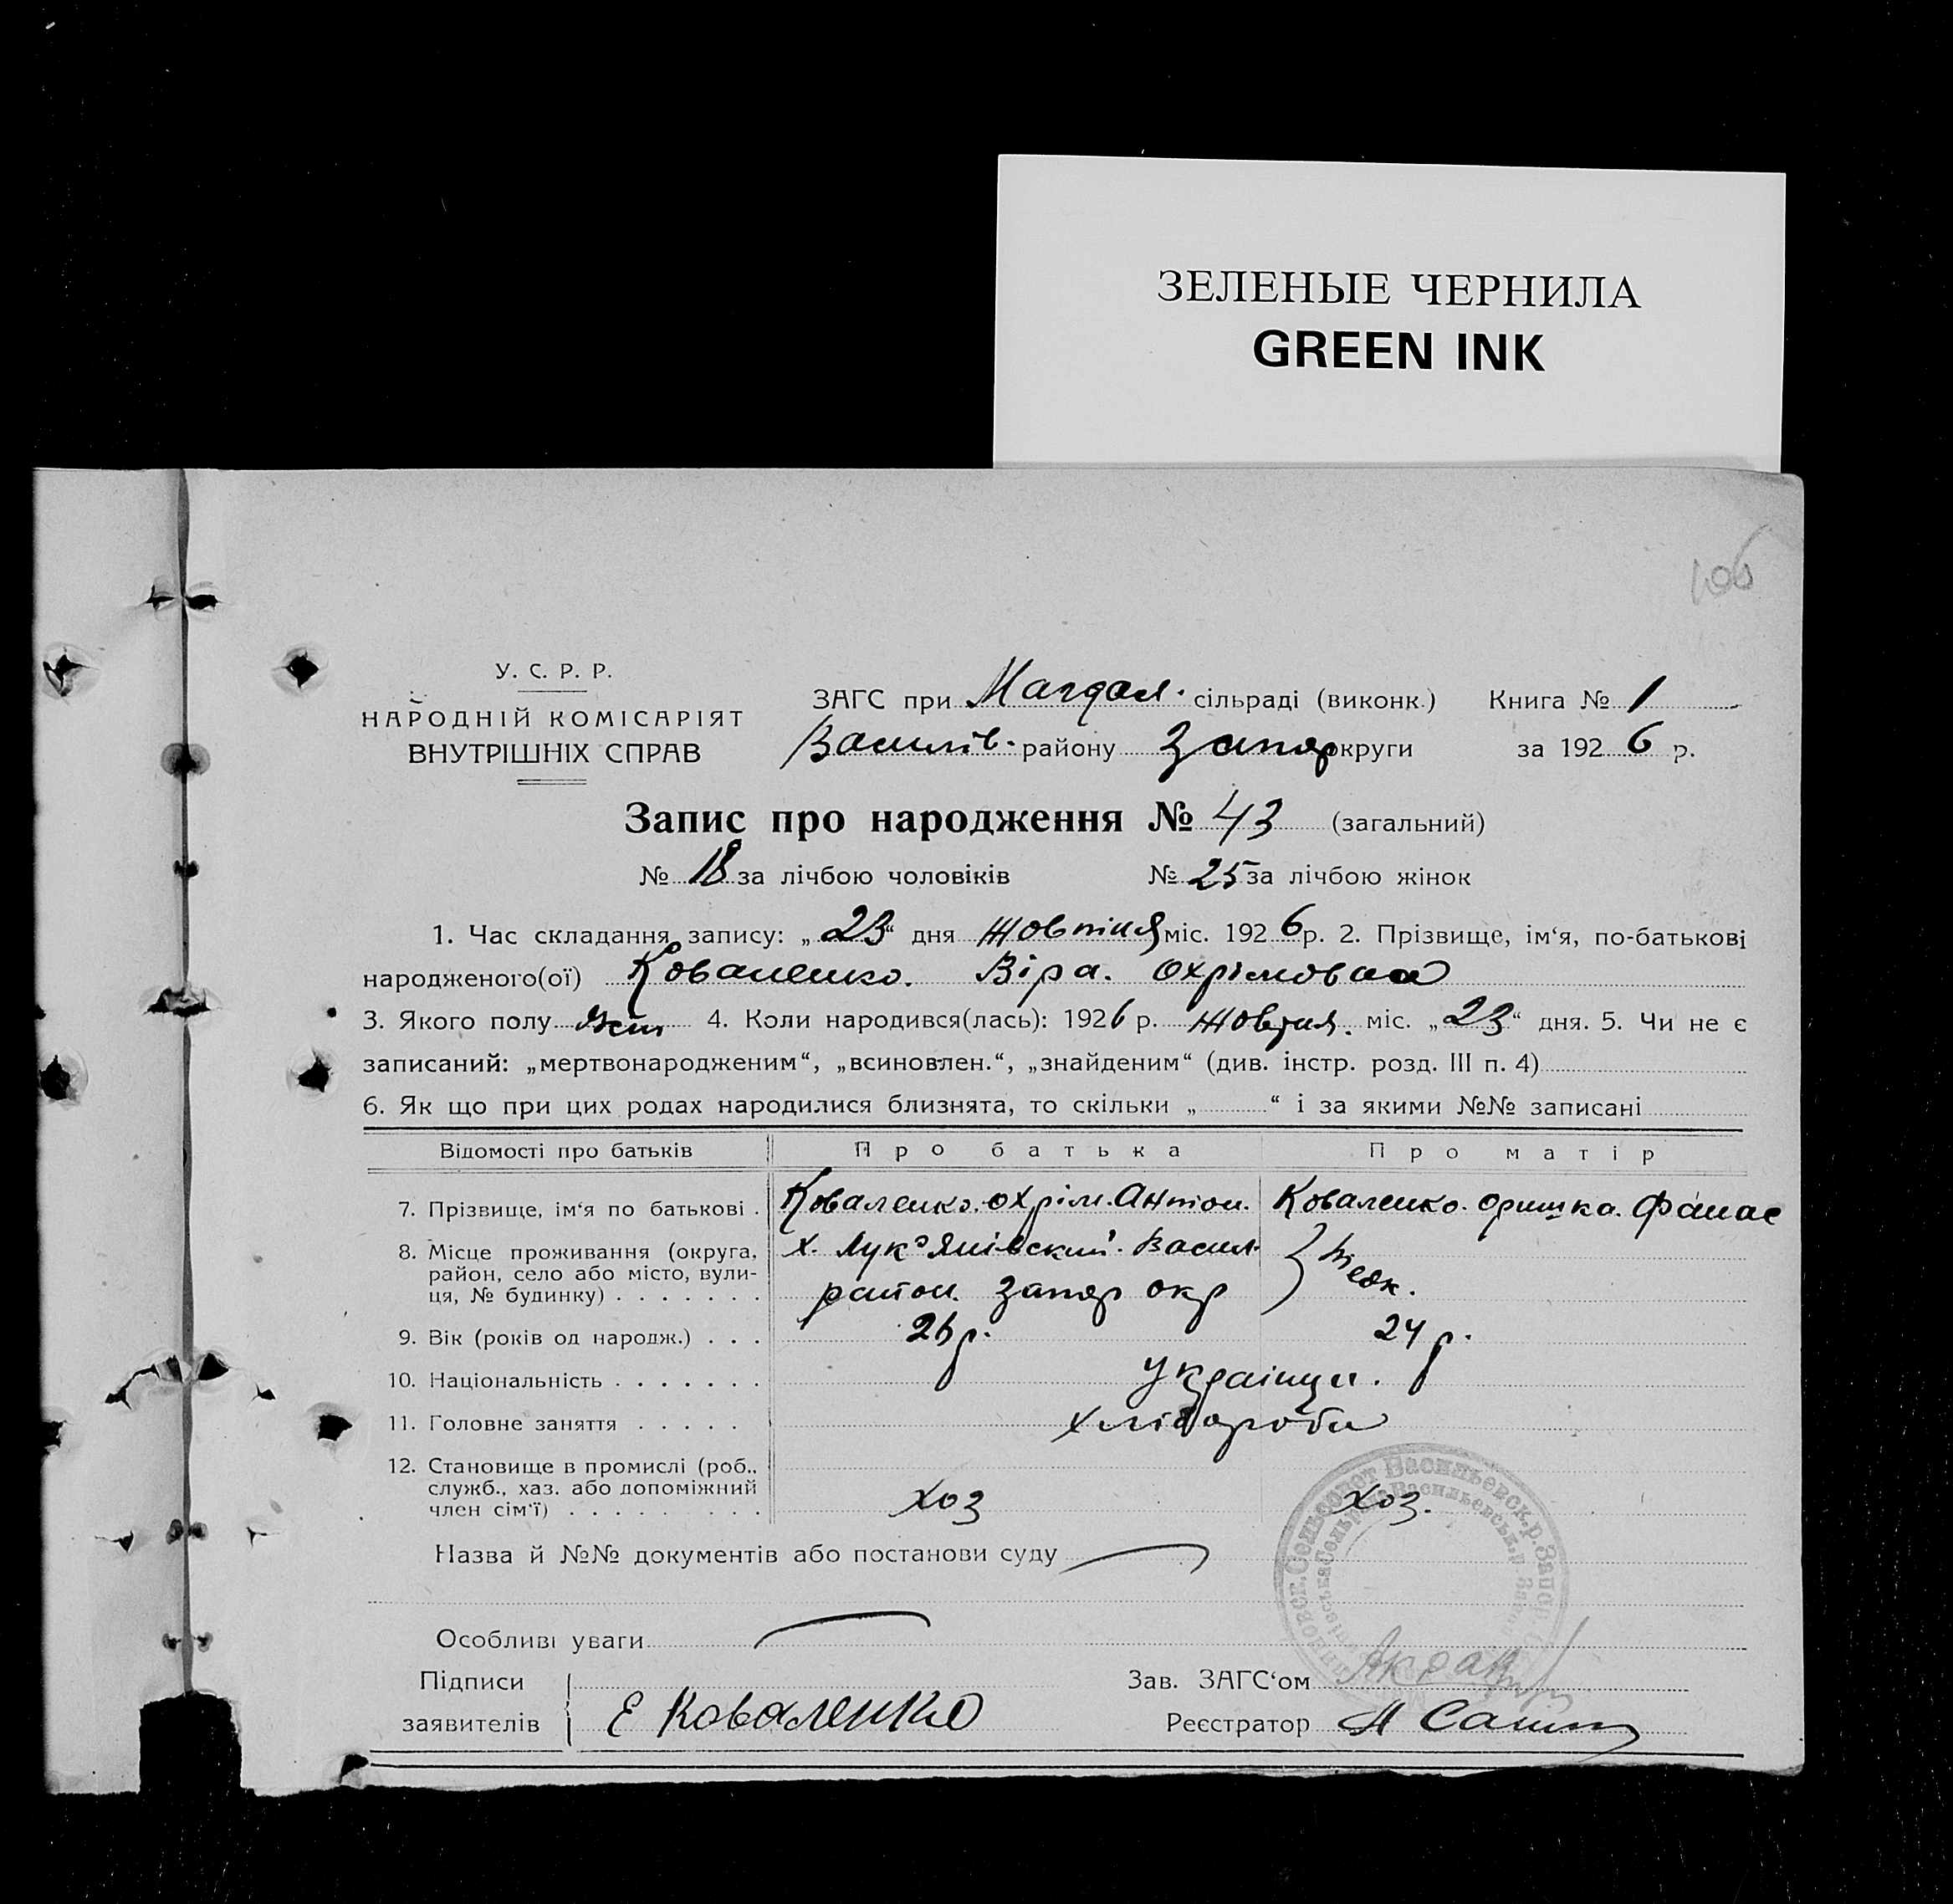 ЗЕЛЕНЫЕ ЧЕРНИЛА
GREEN INK
106
У. С. Р. Р.
НАРОДНІЙ КОМІСАРІЯТ
ВНУТРІШНІХ СПРАВ
ЗАГС при Магдал. сільраді (виконк.) Книга № 1
Василів. району Запор округи за 1926 р.
Запис про народження № 43 (загальний)
№ 18 за лічбою чоловіків № 25 за лічбою жінок
1. Час складання запису: „23“ дня Жовтня міс. 1926 р. 2. Прізвище, ім‘я, по-батькові
народженого(ої) Коваленко. Віра. Охрімовна
3. Якого полу жін 4. Коли народився(лась): 1926 р. Жовтня. міс. „23“ дня. 5. Чи не є
записаний: „мертвонародженим“, „всиновлен.“, „знайденим“ (див. інстр. розд. III п. 4)
6. Як що при цих родах народилися близнята, то скільки „ “ і за якими №№ записані
Відомості про батьків Про батька Про матір
7. Прізвище, ім‘я по батькові . Коваленко. Охрім. Антон. Коваленко. Оришка. Фанас
8. Місце проживання (округа, х. Лук'янівский. Васил.
район, село або місто, вули-
ця, № будинку) . . . . . . . район. Запор окр
9. Вік (років од народж.) . . . 26 р. 24 р.
10. Національність . . . . . . . Українци.
11. Головне заняття . . . . . хлібороби
12. Становище в промислі (роб.,
служб., хаз. або допоміжний
член сім‘ї) . . . . . . . . . хоз хоз.
Назва й №№ документів або постанови суду
Особливі уваги
Підписи
заявителів Е Коваленко
Зав. ЗАГС‘ом
Реєстратор
Сельсовет Васильевск. р. Запор